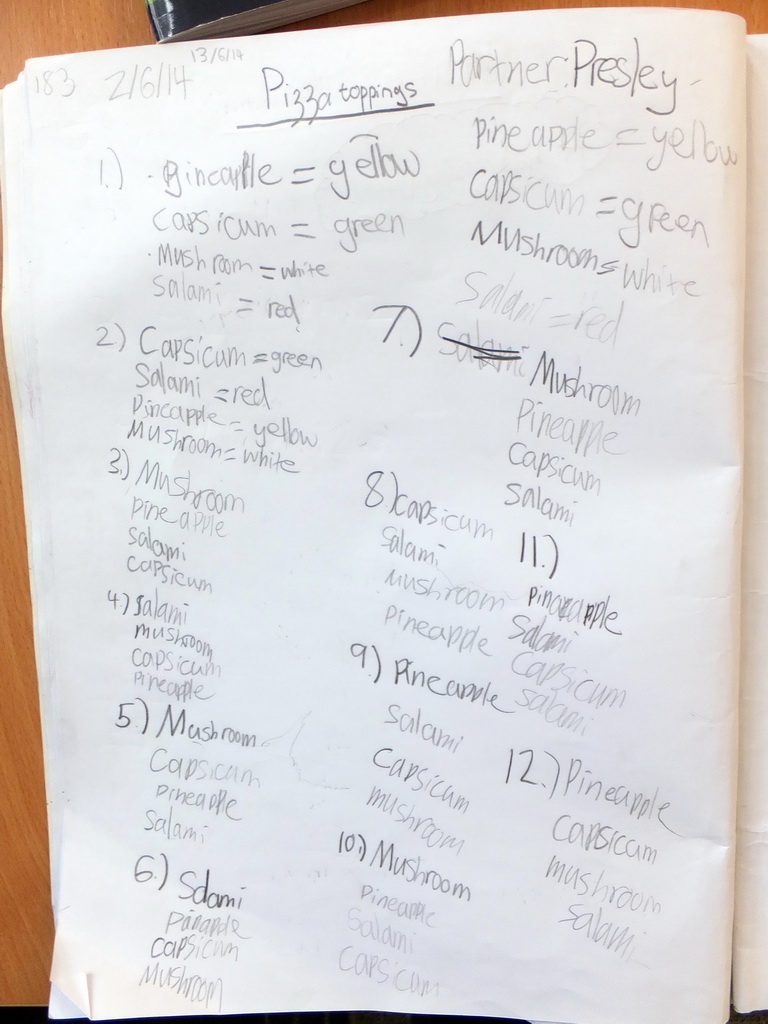 183 2/6/14 13/6/14
Pizza toppings
Partner: Presley
1.) Pineapple = yellow
Capsicum = green
Mushroom = white
Salami = red
2.) Capsicum = green
Salami = red
Pineapple = yellow
Mushroom = white
3.) Mushroom
Pineapple
Salami
Capsicum
4.) Salami
mushroom
Capsicum
Pineapple
5.) Mushroom
Capsicum
Pineapple
Salami
6.) Salami
Capsicum
Mushroom
Pineapple = yellow
Capsicum = green
Mushroom = white
Salami = red
7.) Salami Mushroom
Pineapple
Capsicum
Salami
8.) Capsicum
Salami
mushroom
Pineapple
9.) Pineapple
Salami
Capsicum
mushroom
10.) Mushroom
Pineapple
Salami
Capsicum
11.)
Salami
Capsicum
Salami
12.) Pineapple
Capsiccum
mushroom
Salami